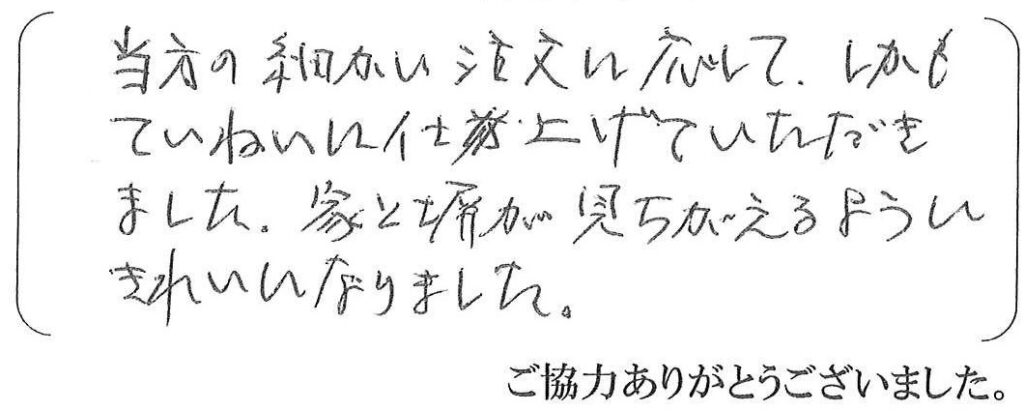 当方の細かい注文に応じて、しかも
ていねいに仕事上げていただき
ました。家と塀が見ちがえるように
きれいになりました。
ご協力ありがとうございました。